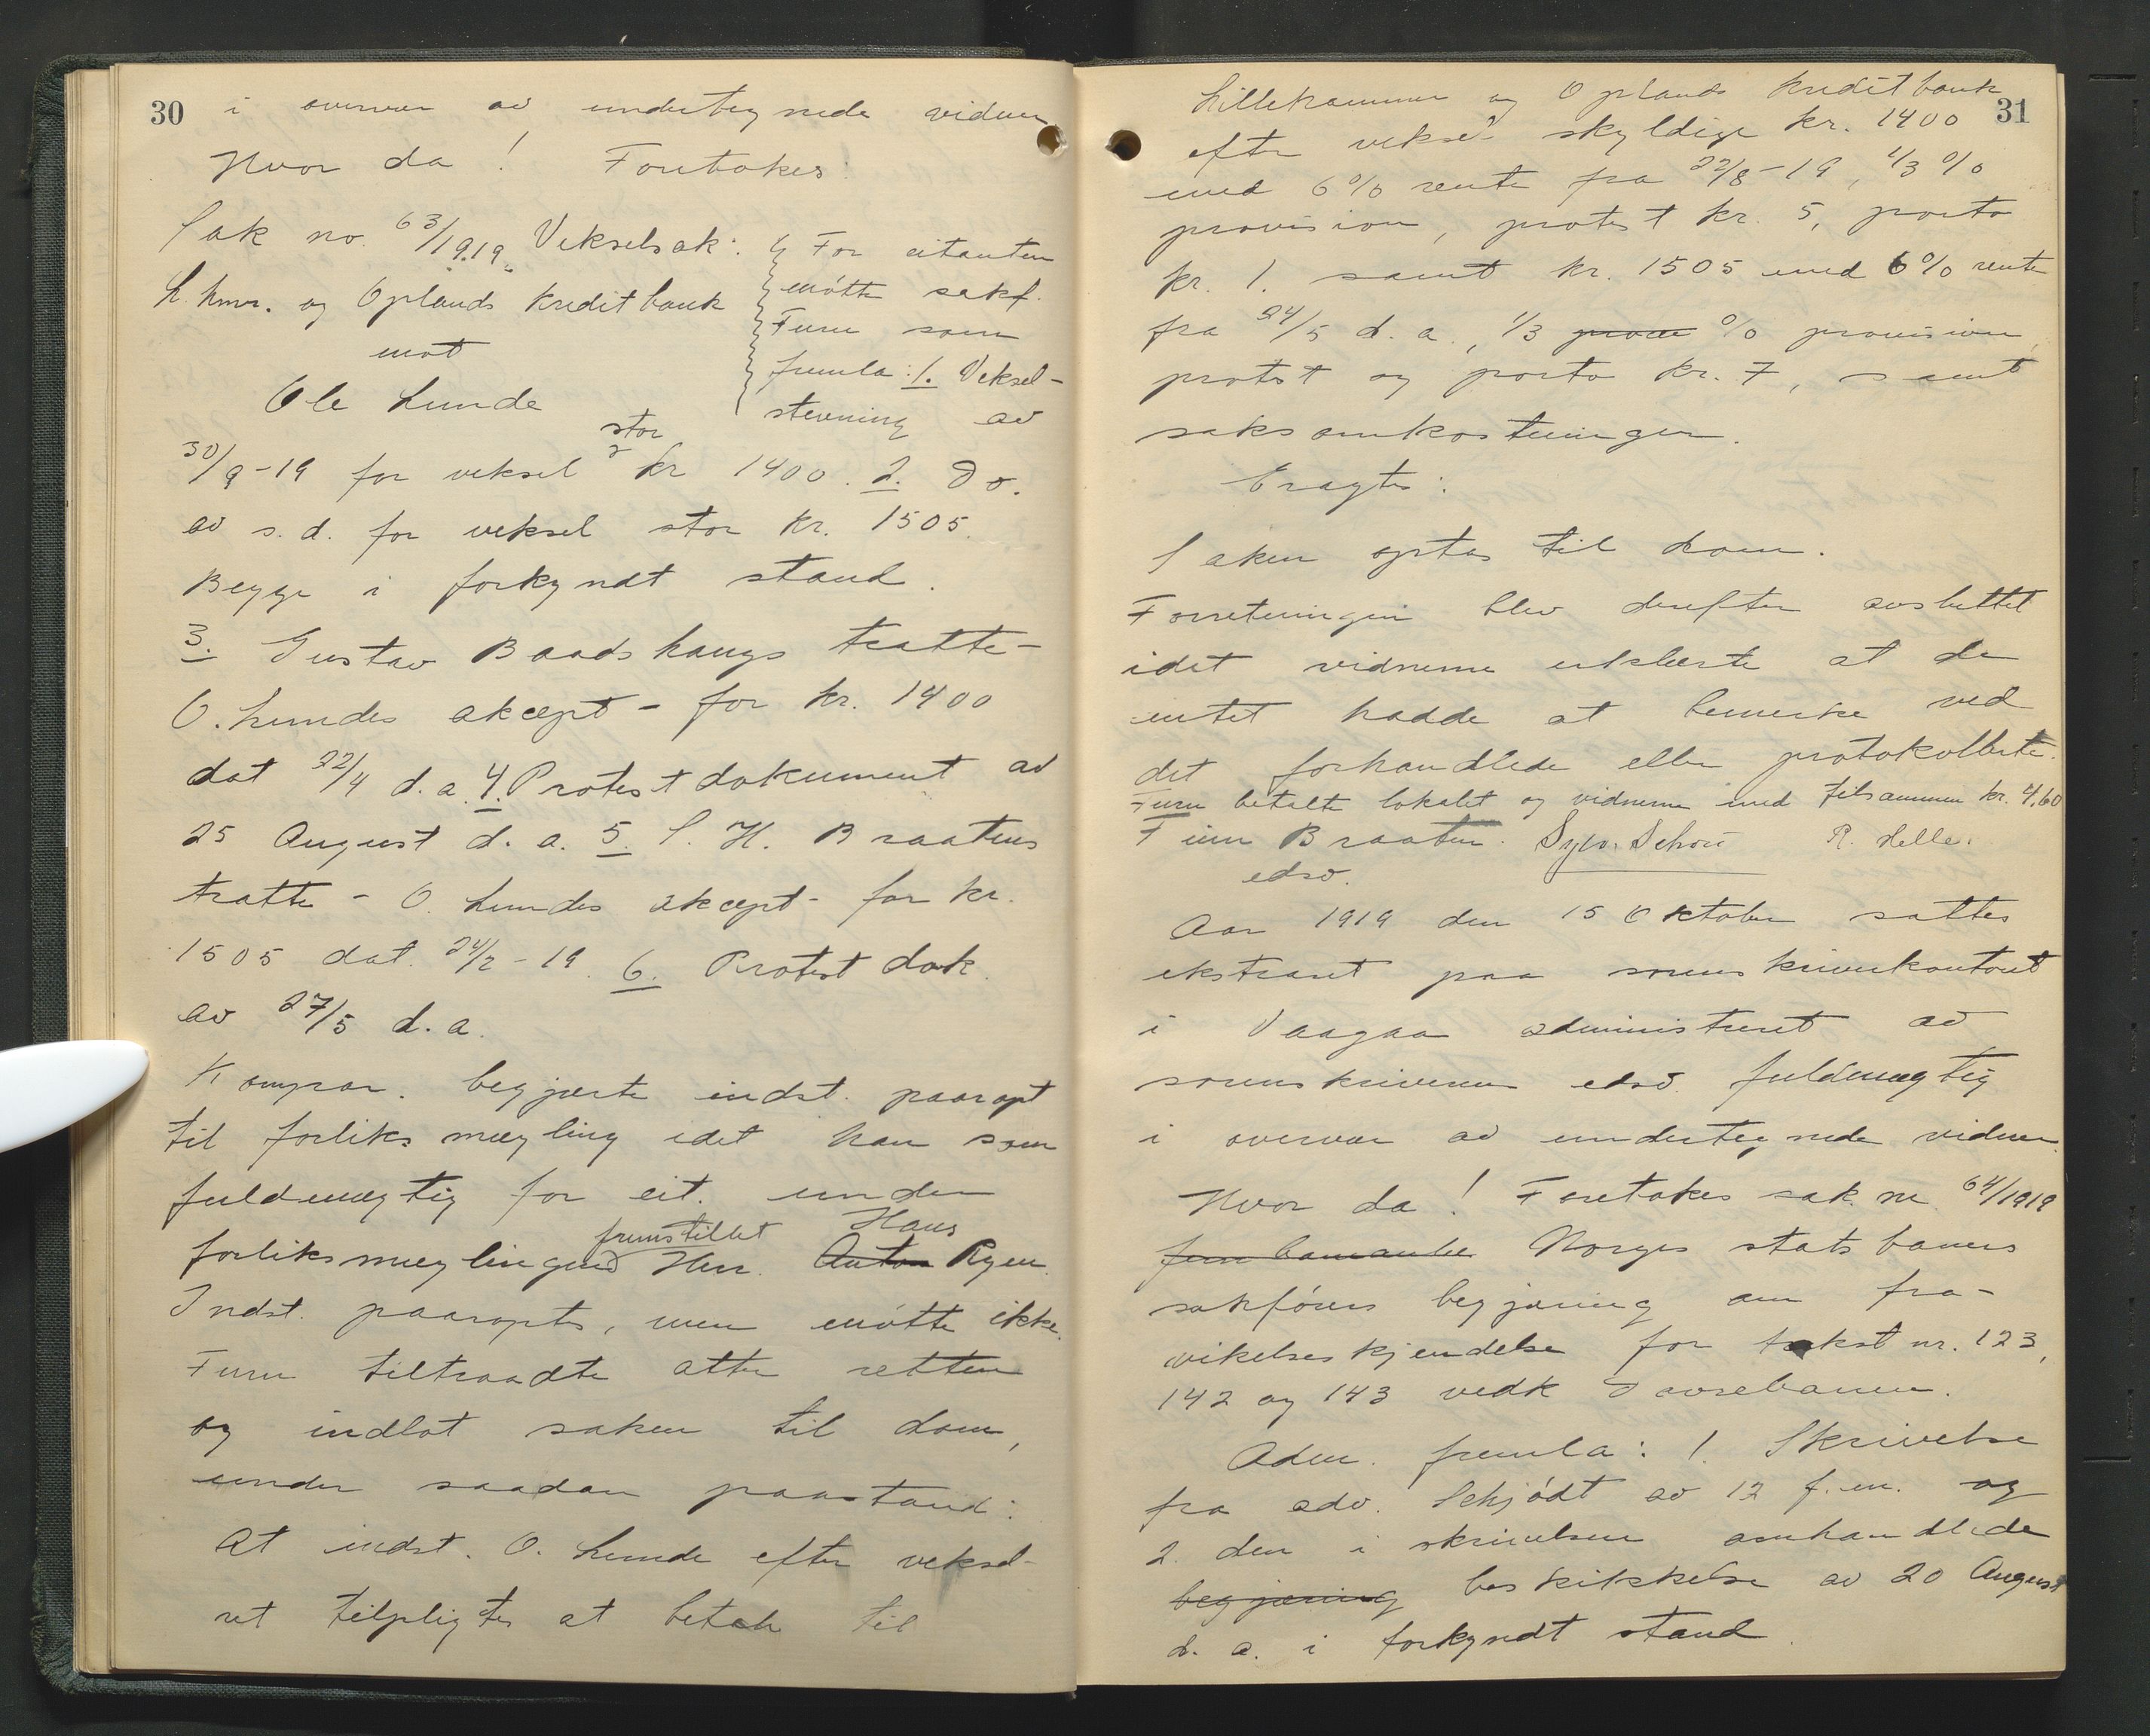 30
i overvær av undertegnede vidner
Hvor da! Foretokes:
Sak no. 63/1919 Vekselsak:
L.hmr. og Oplands Kreditbank
mot
Ole Lunde
For citanten
møtte sakf.
Furu som
fremla: 1. Veksel-
stevning av
30/9-19 for veksel stor kr 1400. 2. Do.
av s. d. for veksel stor kr. 1505.
Begge i forkyndt stand.
3. Gustav Baadshaugs tratte-
O. Lundes akcept - for kr. 1400
dat 22/4 d.a. 4. Protestdokument av
25 August d. a. 5. S. H. Braatens
tratte - O. Lundes akcept - for kr.
1505 dat. 24/2-19. 6. Protest dok.
av 27/5 d. a.
Kompar. begjærte indst. paaropt
til forliksmægling idet han som
fuldmægtig for cit. under
forliksmæglingen fremstillet Herr. Anton Hans Ryen.
Indst. paaroptes, men møtte ikke.
Furu tiltraadte atter retten
og indlot saken til dom,
under saadan paastand:
At indst. O. Lunde efter veksel-
ret tilpligtes at betale til
31
Lillehammer og Oplands Kreditbank
efter veksel skyldige kr. 1400
med 6% rente fra 22/8-19, 1/3 %
provision, protest kr. 5, porto
kr. 1. samt kr. 1505 med 6% rente
fra 24/5 d. a., 1/3 % provision,
protest og porto kr. 7, samt
saksomkostninger.
Eragtes:
Saken optas til dom.
Forretningen blev derefter avsluttet
idet vidnerne erklærte at de
intet hadde at bemerke ved
det forhandlede eller protokollerte.
Furu betalte lokalet og vidnerne med tilsammen kr. 4,60
Finn Braaten. Sylv. Schou R. Helle.
edsv.
Aar 1919 den 15 Oktober sattes
ekstraret paa sorenskriverkontoret
i Vaagaa administreret av
sorenskriverens edsv. fuldmægtig
i overvær av undertegnede vidner.
Hvor da! Foretokes sak nr. 64/1919
Norges statsbaners
sakførers begjæring om fra-
vikelseskjendelse for takst nr. 123,
142 og 143 vedk Dovrebanen.
Adm. fremla: 1. Skrivelse
fra adv. Schjødt av 12 f. m. og
2. den i skrivelsen omhandlede
begjæring beskikkelse av 20 August
d. a. i forkyndt stand.